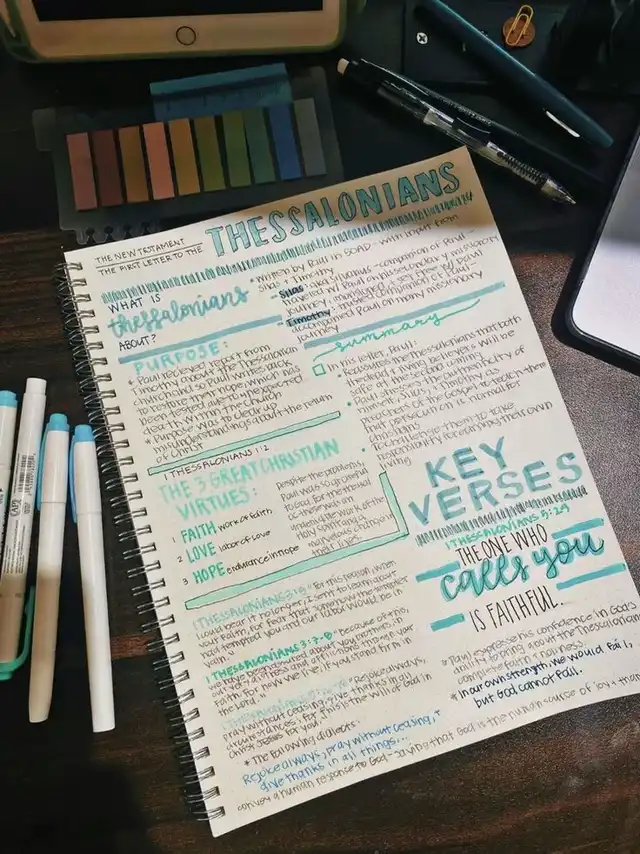 THE NEW TESTAMENT
THE FIRST LETTER TO THE
THESSALONIANS
WHAT IS
thessalonians
ABOUT?
* Written by Paul in 50AD - with input from
Silas & Timothy
- Silas: aka Silvanus - companion of Paul -
Paul on his second missionary
journey,
- Timothy: trusted companion of Paul -
accompanied Paul on many missionary
journey
PURPOSE:
* Paul recieved report from
Timothy about the Thessalonian
church so Paul writes back
to restore their hope which has
been tested due to unexpected
death within the church
* Purpose was to clear up
misunderstandings about the return
of Christ
summary
In his letter, Paul:
Reassures the Thessalonians that both
the dead & living believers will be
at the second coming
Paul stresses the authenticity of
himself, Silas, & Timothy as
of the Gospel to teach them
that persecution is normal for
Christians
He challenges them to take
responsibility for earning their own
living
1 THESSALONIANS 1:2
THE 3 GREAT CHRISTIAN
VIRTUES:
1 FAITH work of faith,
2 LOVE labor of love
3 HOPE endurance in hope
Despite the problems,
Paul was so grateful
to God for the
work of the
Holy Spirit and a
marvelous change in
their lives.
KEY
VERSES
1 THESSALONIANS 5:24
THE ONE WHO
calls you
IS FAITHFUL.
1 THESSALONIANS 3:5 "For this reason, when
I could bear it no longer, I sent to learn about
your faith, for fear that somehow the tempter
had tempted you and our labor would be in
vain."
1 THESSALONIANS 3:7-8 "because of this,
brothers, in
all our distress and affliction
faith. For now we live, if you stand firm in
the Lord."
"Rejoice always,
pray without ceasing, give thanks in all
circumstances; for this is the will of God in
Christ Jesus for you."
* The following
Rejoice always, pray without ceasing, &
give thanks in all things...
convey a human response to God - saying that God is the human source of joy & than
* Paul express his confidence in God's
the Thessalonians
complete faith & holiness.
* In our own strength, we would fail,
but God cannot fail.